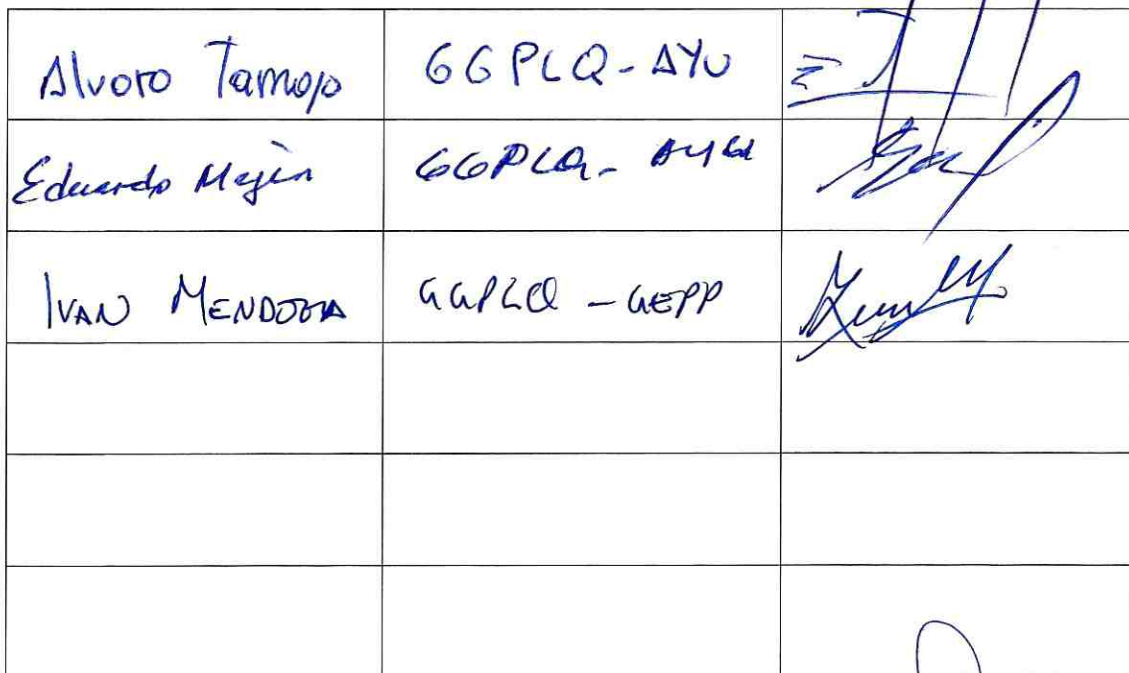 Alvaro Tamayo GGPLQ-AYU
Eduardo Mejía GGPLQ-
IVAN MENDOZA GGPLQ - GEPP